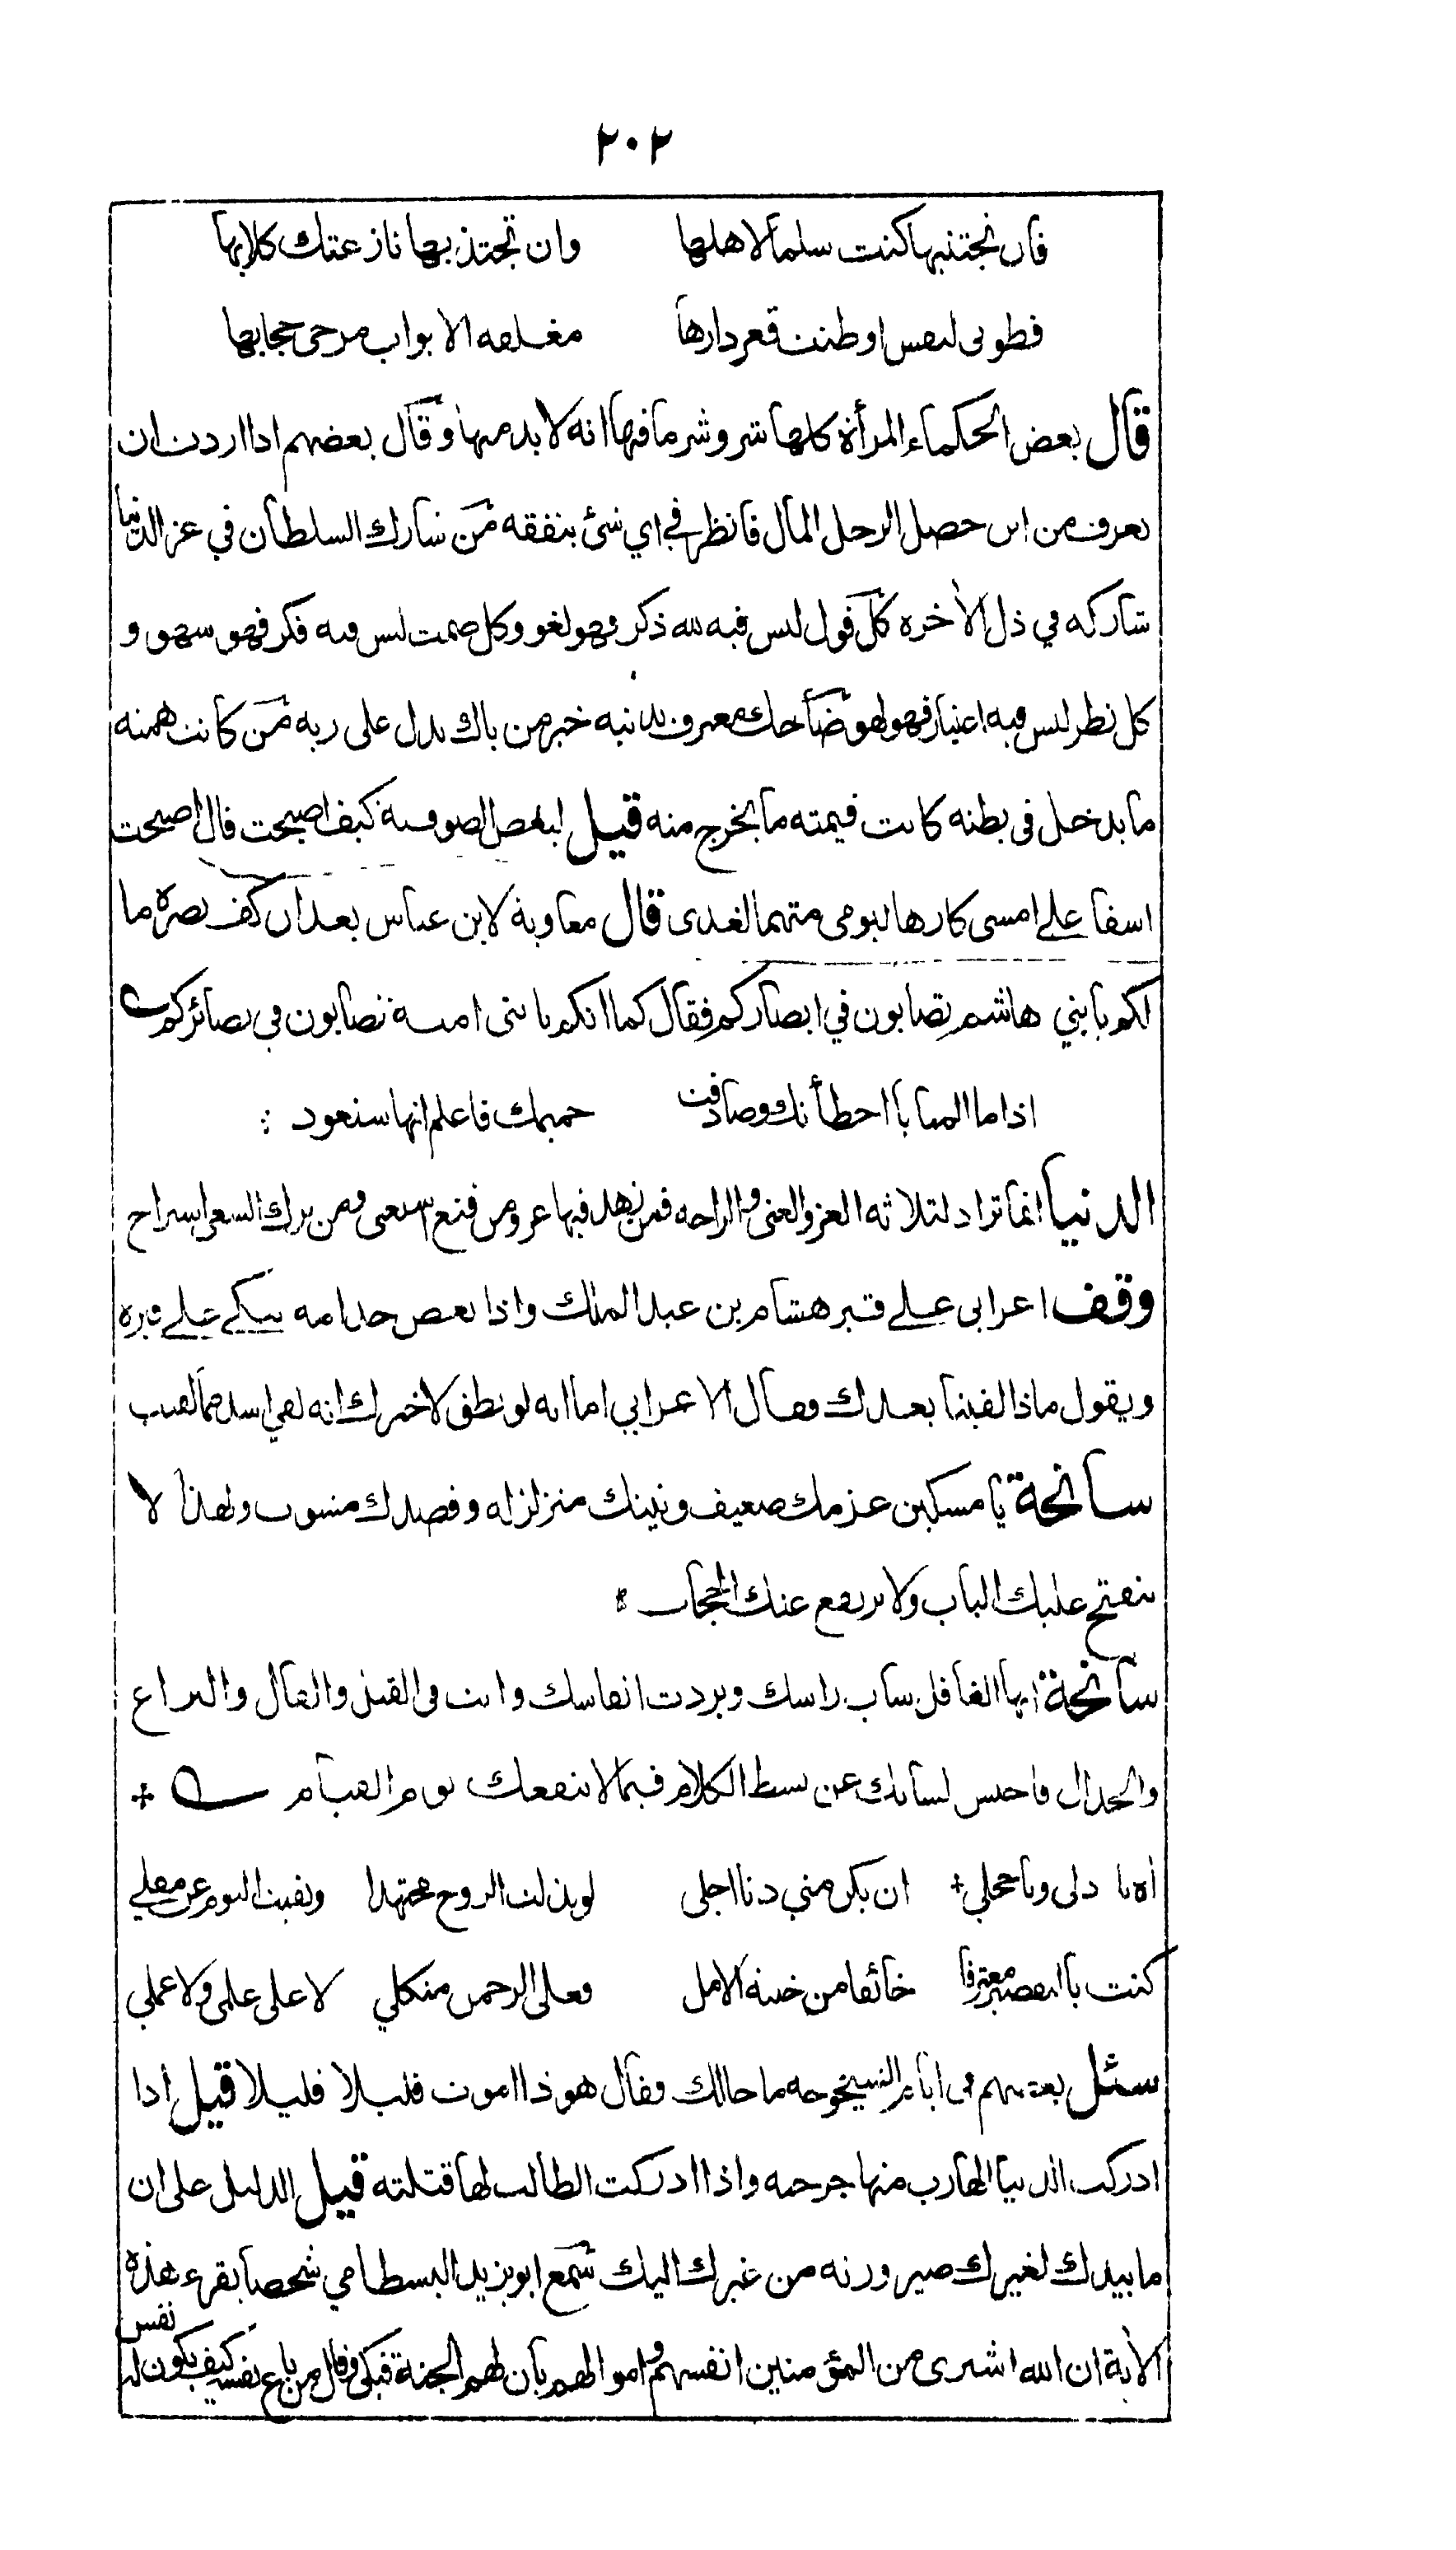 ٢٠٢
فان تجتنبها كنت سلما لاهلها وان تجتذبها نازعتك كلابها
فطوبى لنفس اوطنت قعر دارها مغلقه الابواب مرخى حجابها
قال بعض الحكماء المرأة كلها شر وشر ما فيها انه لا بد منها وقال بعضهم اذا اردت ان
تعرف من اين حصل الرجل المال فانظر في اي شئ ينفقه من شارك السلطان في عز الدنيا
شاركه في ذل الاخره كل قول ليس فيه لله ذكر فهو لغو وكل صمت ليس فيه فكر فهو سهو و
كل نظر ليس فيه اعتبار فهو لهو ضاحك معترف بذنبه خير من باك يدل على ربه من كانت همته
ما يدخل في بطنه كانت قيمته ما يخرج منه قيل لبعض الصوفية كيف اصبحت قال اصبحت
اسفا على امسى كارها ليومى متهما لغدى قال معاوية لابن عباس بعد ان كف بصره ما
لكم يا بني هاشم تصابون في ابصاركم فقال كما انكم يا بنى امية تصابون في بصائركم
اذا ما المنايا اخطأتك وصادفت حميمك فاعلم انها ستعود :
الدنيا انما تراد لثلاثه العز والغنى والراحه فمن زهد فيها عز ومن قنع استغنى ومن ترك السعى استراح
وقف اعرابى على قبر هشام بن عبد الملك واذا بعض خدامه يبكى على قبره
ويقول ماذا لقينا بعدك فقال الاعرابي اما انه لو نطق لاخبرك انه لقي اشد مما لقيت
سانحة يا مسكين عزمك ضعيف ونيتك متزلزله وقصدك مشوب ولهذا لا
ينفتح عليك الباب ولا يرتفع عنك الحجاب
سانحة ايها الغافل شاب راسك وبردت انفاسك وانت في القيل والقال والنزاع
والجدال فاحبس لسانك عن بسط الكلام فيما لا ينفعك يوم القيام
اه يا ذلى ويا خجلي ان يكن مني دنا اجلى لو بذلت الروح مجتهدا ونفيت النوم عن مقلي
كنت بالتقصير معترفا خائفا من خيبة الامل فعلى الرحمن متكلي لا على علمي ولا عملي
سئل بعضهم في ايام الشيخوخه ما حالك فقال هوذا اموت قليلا قليلا قيل اذا
ادركت الدنيا الهارب منها جرحته واذا ادركت الطالب لها قتلته قيل الدليل على ان
ما بيدك لغيرك صيرورته من غيرك اليك سمع ابو يزيد البسطامي شخصا يقرء هذه
الاية ان الله اشترى من المؤمنين انفسهم واموالهم بان لهم الجنة فبكى وقال من باع نفسه كيف يكون له نفس